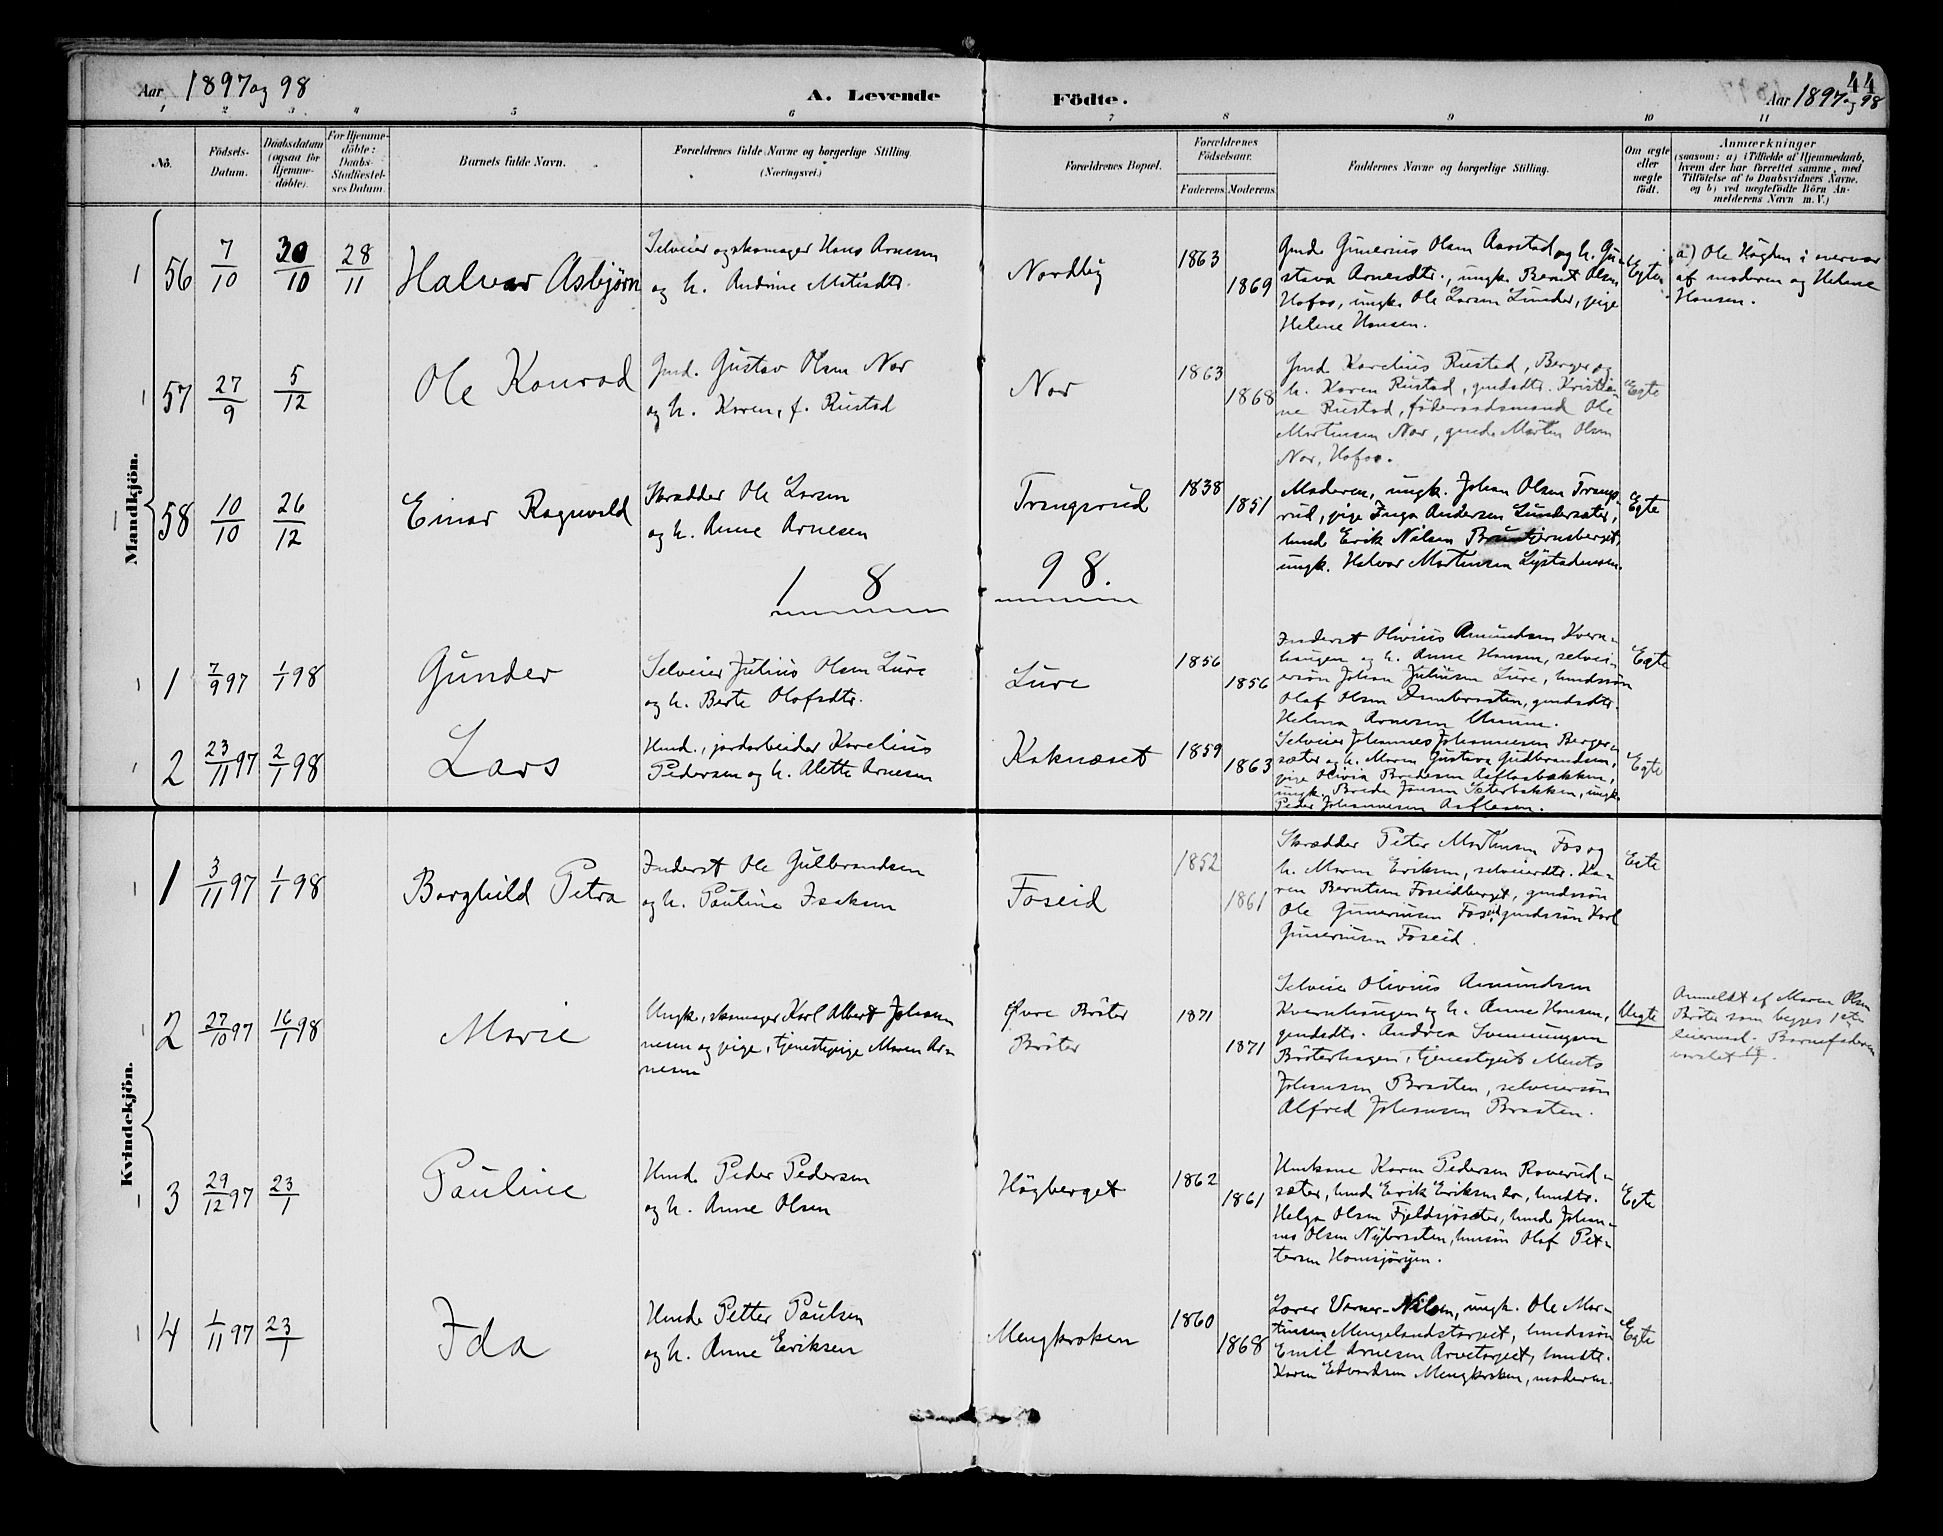 Aar 1897 og 98
A. Levende Födte.
Aar 1897 og 98
44
1 2 3 4 5 6 7 8 9 10 11
No.
Födsels-
Datum.
Daabsdatum
(ogsaa for
Hjemme-
döbte).
For Hjemme-
döbte:
Daabs-
Stadfæstel-
ses Datum.
Barnets fulde Navn.
Forældrenes fulde Navne og borgerlige Stilling.
(Næringsvei.)
Forældrenes Bopæl.
Forældrenes
Födselsaar.
Faderens Moderens
Faddernes Navne og borgerlige Stilling.
Om ægte
eller
uægte
födt.
Anmærkninger
(saasom: a) i Tilfælde af Hjemmedaab,
hvem der har forrettet samme, med
Tilföielse af to Daabsvidners Navne,
og b) ved uægtefödte Börn An-
melderens Navn m. V.)
Mandkjön.
56 7/10 30/10 28/11
Halvor Asbjørn
Selveier og skomager Hans Arnesen
og h. Andrine Matisdtr.
Nordby
1863
1869
Gmd. Gunerius Olsen Aarstad og h. Gu-
stava Arnesdtr., ungk. Bernt Olsen
Hofos, ungk. Ole Larsen Lunder, pige
Helene Hansen.
Egte
a) Ole Hagden i nærvær
af moderen og Helene
Hansen.
57 27/9 5/12
Ole Konrad
Gmd. Gustav Olsen Nor
og h. Karen, f. Rustad
Nor
1863
1868
Gmd Karelius Rustad, Berger og
h. Karen Rustad, gmdsdtr. Kristia-
ne Rustad, föderaadsmand Ole
Martinsen Nor, gmd. Martin Olsen
Nor, Hofos.
Egte
58 10/10 26/12
Einar Ragnvald
Skrædder Ole Larsen
og h. Anne Arnesen
Trangsrud
1838
1851
Moderen, ungk. Johan Olsen Trangs-
rud, pige Inga Andersen Lundersæter,
hmd Erik Nilsen
ungk. Halvor Martinsen
Egte
1 8 9 8.
1 7/9 97 1/1 98
Gunder
Selveier Julius Olsen Lure
og h. Berte Olofsdtr.
Lure
1856
1856
Inderst Olivius Amundsen Kvern-
haugen og h. Anne Hansen, selvei-
ersön Johan Juliusen Lure, hmdssön
Olaf Olsen gmdsdtr.
Helma Arnesen
Egte
2 23/11 97 2/1 98
Lars
Hmd., jordarbeider Karelius
Pedersen og h. Alette Arnesen
Kaknæset
1859
1863
Selveier Johannes Johannesen Berger-
sæter og h. Maren Gustava Gudbrandsen,
pige Olivia Bredesen Asflaabakken,
ungk. Brede Jansen Sæterbakken, ungk.
Peder Johannesen Aaflaaen.
Egte
Kvindekjön.
1 3/11 97 1/1 98
Borghild Petra
Inderst Ole Gulbrandsen
og h. Pauline Isaksen
Foseid
1852
1861
Skrædder Peter Martinsen Fos og
h. Maren Eriksen, selveierdtr. Ka-
ren Berntsen Foseidberget, gmdssön
Ole Gunerusen Foseid, gmdssön Karl
Gunerusen Foseid.
Egte
2 27/10 97 16/1 98
Marie
Ungk., skomager Karl Albert Johan-
nesen og pige, tjenestepige Maren Ar-
nesen
Øvre Bröter
Bröter
1871
1871
Selveier Olivius Amundsen
Kvernhaugen og h. Anne Hansen,
gmdsdtr. Andrea Svenungsen
Bröterhagen, tjenestegut Ments
Johansen Braaten, selveiersön
Alfred Johansen Braaten.
Uegte
Anmeldt af Maren Olsen
Bröter som begges 1ste
leiermaal. Barnefaderen
varslet
3 29/12 97 23/1
Pauline
Hmd. Peder Pedersen
og h. Anne Olsen
Högberget
1862
1861
Huskone Karen Pedersen Raverud-
sæter, hmd Erik Eriksen do, hmdtr.
Helga Olsen Fjeldsjösæter, hmd. Johan-
nes Olsen Nybraaten, hmsön Olaf Pet-
tersen
Egte
4 1/11 97 23/1
Ida
Hmd. Petter Paulsen
og h. Anne Eriksen
Mengkroken
1860
1868
Lærer Verner-Nilsen, ungk. Ole Mar-
tinsen Mengelandstorpet, hmdssön
Emil Arnesen Arvetorpet, hmdtr.
Karen Edvardsen Mengkroken, moderen.
Egte